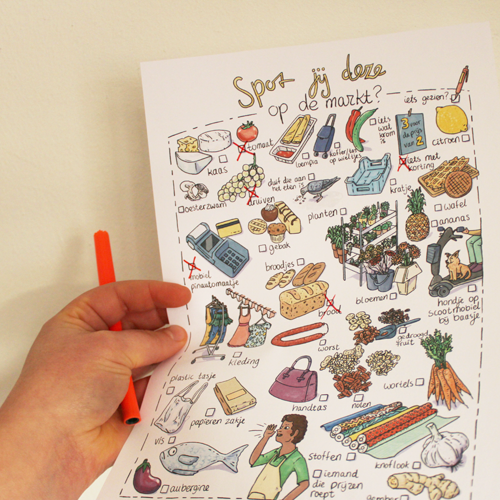 Spot jij deze
op de markt?
iets gezien?
kaas
tomaat
loempia
koffer/tas
op wieltjes
iets
wat
krom
is
3 voor
de prijs
van
2
iets met
korting
citroen
oesterzwam
druiven
duif die aan
het eten is
kratje
wafel
gebak
planten
ananas
mobiel
pinautomaatje
broodjes
brood
bloemen
hondje op
scootmobiel
bij baasje
kleding
worst
gedroogd
fruit
plastic tasje
papieren zakje
handtas
noten
wortels
vis
stoffen
knoflook
aubergine
iemand
die prijzen
roept
gember